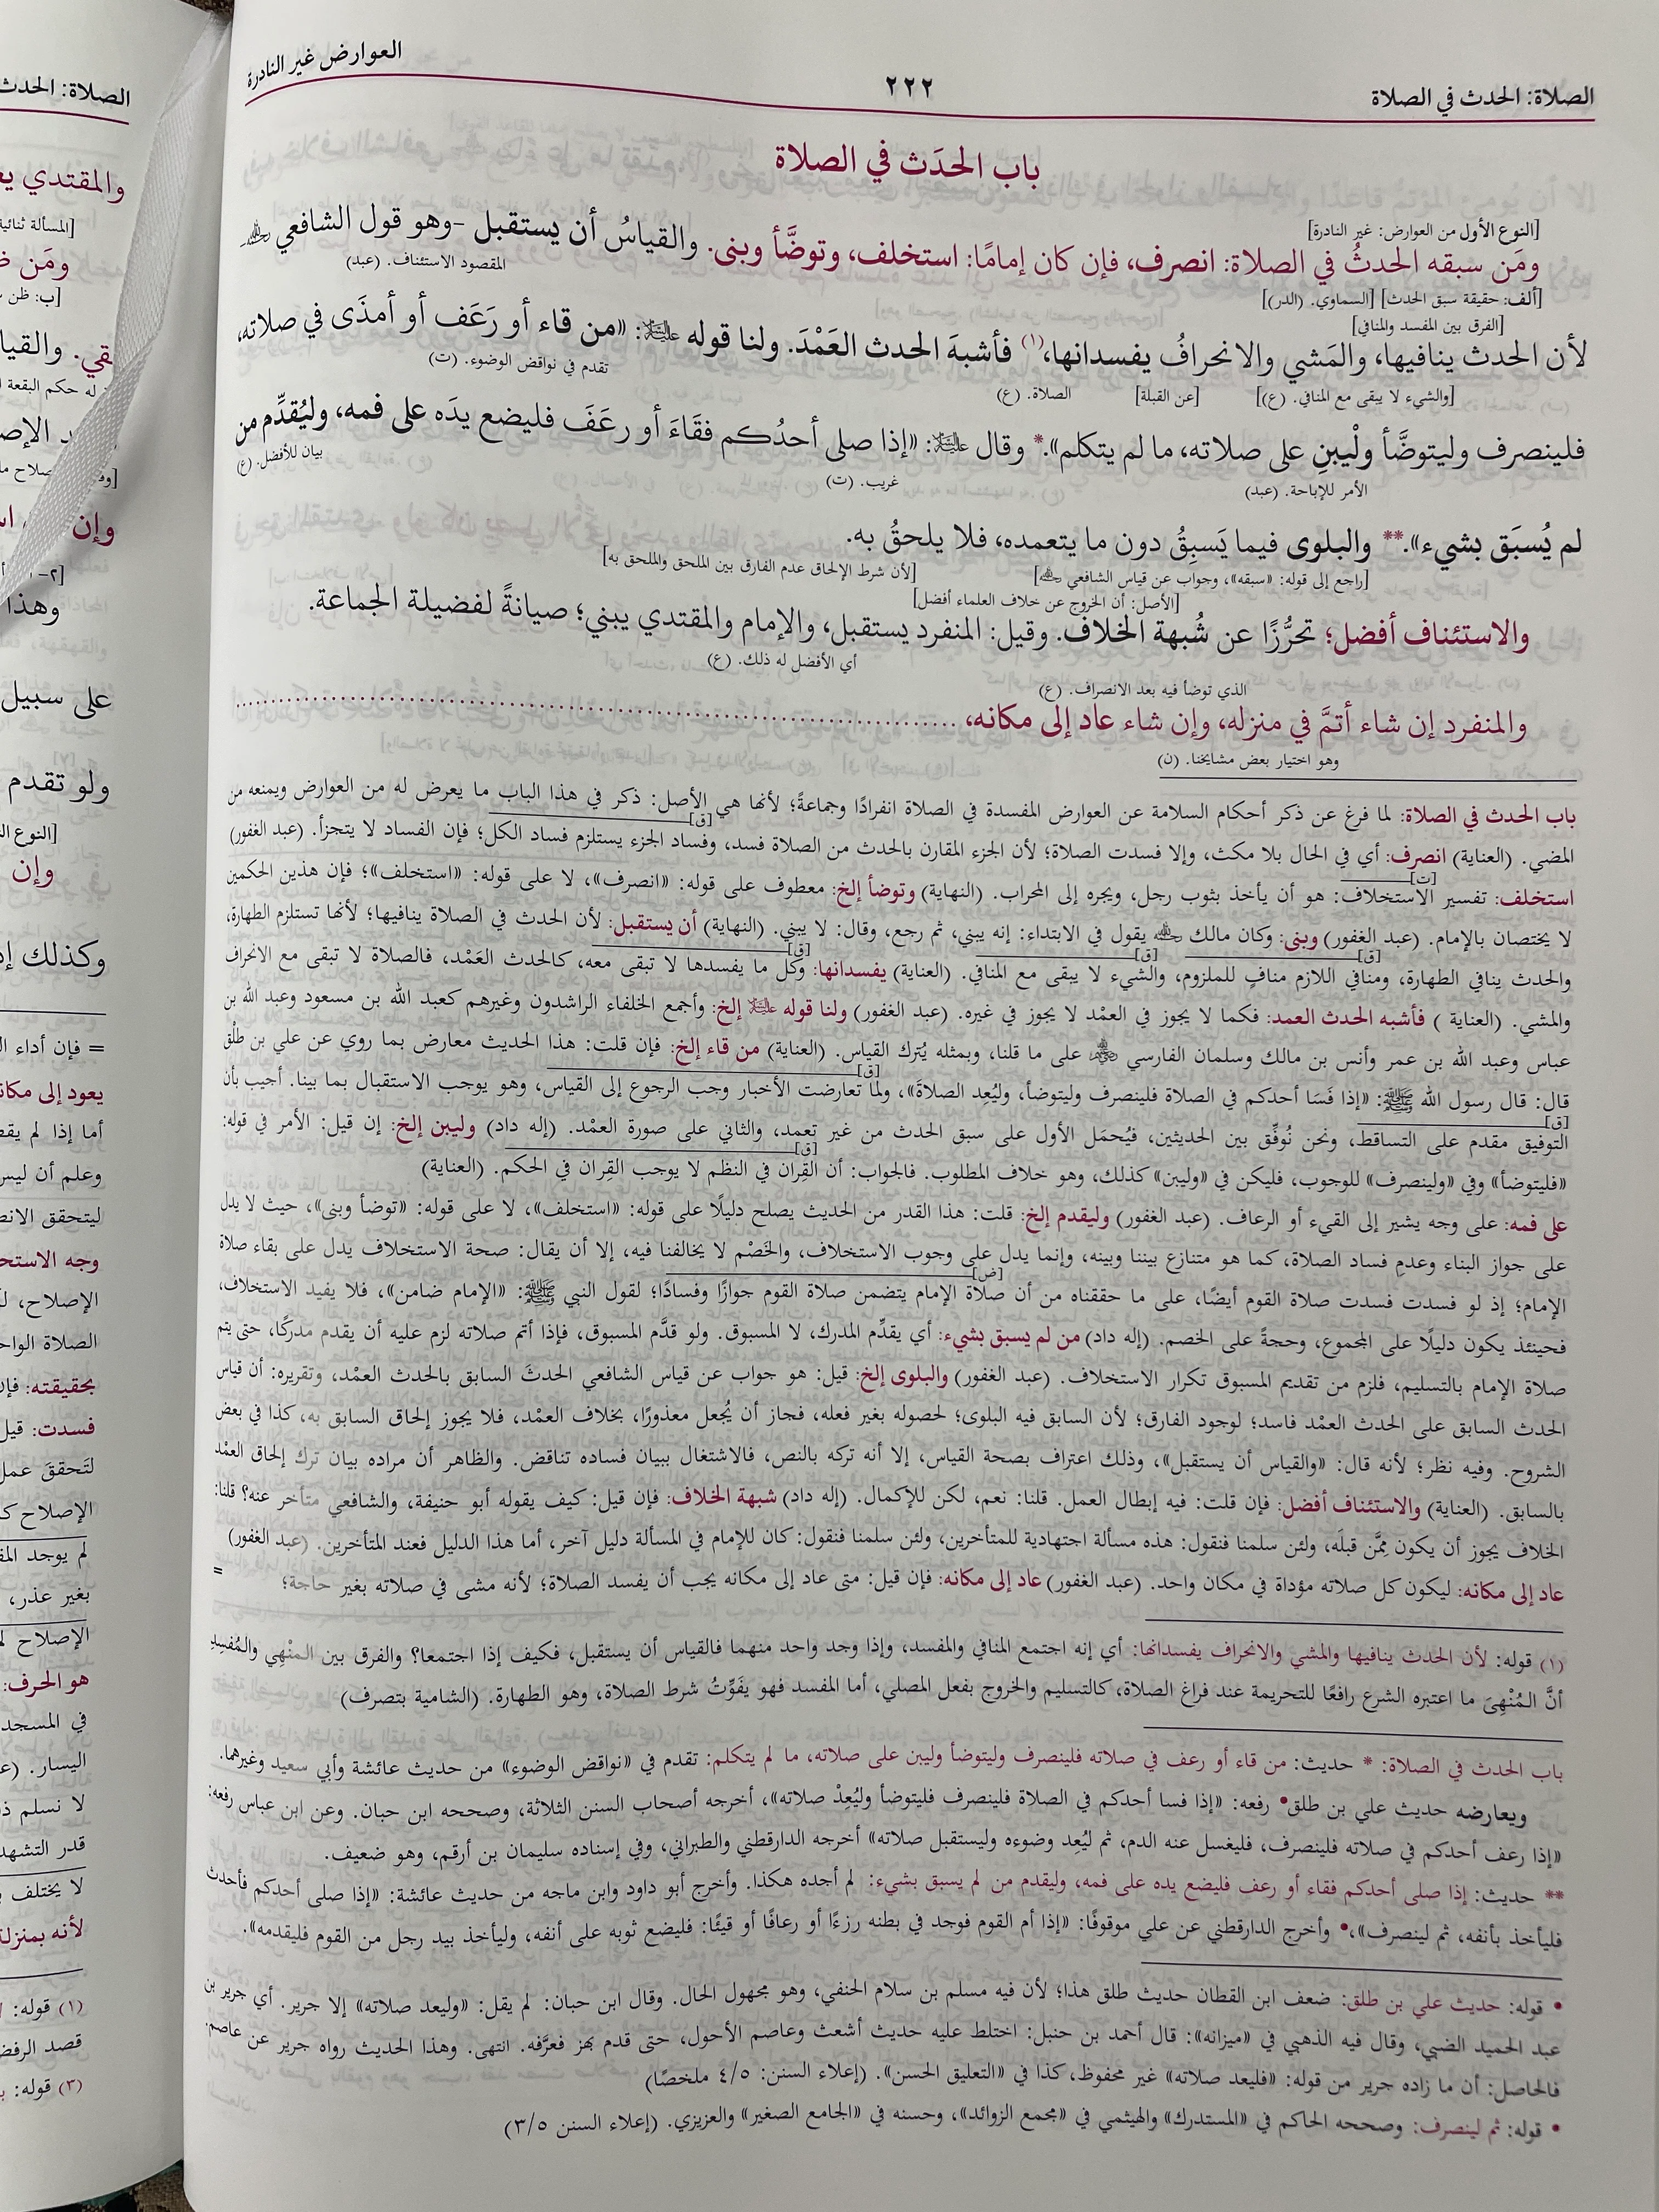 الصلاة: الحدث في الصلاة
٢٢٢
العوارض غير النادرة
باب الحدَث في الصلاة
[النوع الأول من العوارض: غير النادرة]
ومَن سبقه الحدثُ في الصلاة: انصرف، فإن كان إمامًا: استخلف، وتوضَّأ وبنى. والقياسُ أن يستقبل -وهو قول الشافعي رحمه الله-
[ألف: حقيقة سبق الحدث] [السماوي. (الدر)]
المقصود الاستئناف. (عبد)
[الفرق بين المفسد والمنافي]
لأن الحدث ينافيها، والمَشي والانحرافُ يفسدانها،(١) فأشبهَ الحدث العَمْدَ. ولنا قوله عليه السلام: «من قاء أو رَعَف أو أمذَى في صلاته،
[والشيء لا يبقى مع المنافي. (ع)]
[عن القبلة]
الصلاة. (ع)
تقدم في نواقض الوضوء. (ت)
فلينصرف وليتوضَّأ ولْيبنِ على صلاته، ما لم يتكلم».* وقال عليه السلام: «إذا صلى أحدُكم فقَاءَ أو رعَفَ فليضع يدَه على فمه، وليُقدِّم من
الأمر للإباحة. (عبد)
غريب. (ت)
بيان للأفضل. (ع)
لم يُسبَق بشيء».** والبلوى فيما يَسبِقُ دون ما يتعمده، فلا يلحقُ به.
[راجع إلى قوله: «سبقه»، وجواب عن قياس الشافعي رحمه الله]
[لأن شرط الإلحاق عدم الفارق بين الملحق والملحق به]
[الأصل: أن الخروج عن خلاف العلماء أفضل]
والاستئناف أفضل؛ تحرُّزًا عن شُبهة الخلاف. وقيل: المنفرد يستقبل، والإمام والمقتدي يبني؛ صيانةً لفضيلة الجماعة.
أي الأفضل له ذلك. (ع)
الذي توضأ فيه بعد الانصراف. (ع)
والمنفرد إن شاء أتمَّ في منزله، وإن شاء عاد إلى مكانه، ..............................
وهو اختيار بعض مشايخنا. (ن)
باب الحدث في الصلاة: لما فرغ عن ذكر أحكام السلامة عن العوارض المفسدة في الصلاة انفرادًا وجماعةً؛ لأنها هي الأصل: ذكر في هذا الباب ما يعرض له من العوارض ويمنعه من
المضي. (العناية) انصرف: أي في الحال بلا مكث، وإلا فسدت الصلاة؛ لأن الجزء المقارن بالحدث من الصلاة فسد، وفساد الجزء يستلزم فساد الكل؛ فإن الفساد لا يتجزأ. (عبد الغفور)
استخلف: تفسير الاستخلاف: هو أن يأخذ بثوب رجل، ويجره إلى المحراب. (النهاية) وتوضأ إلخ: معطوف على قوله: «انصرف»، لا على قوله: «استخلف»؛ فإن هذين الحكمين
لا يختصان بالإمام. (عبد الغفور) وبنى: وكان مالك رحمه الله يقول في الابتداء: إنه يبني، ثم رجع، وقال: لا يبني. (النهاية) أن يستقبل: لأن الحدث في الصلاة ينافيها؛ لأنها تستلزم الطهارة،
والحدث ينافي الطهارة، ومنافي اللازم منافٍ للملزوم، والشيء لا يبقى مع المنافي. (العناية) يفسدانها: وكل ما يفسدها لا تبقى معه، كالحدث العَمْد، فالصلاة لا تبقى مع الانحراف
والمشي. (العناية ) فأشبه الحدث العمد: فكما لا يجوز في العمْد لا يجوز في غيره. (عبد الغفور) ولنا قوله عليه السلام إلخ: وأجمع الخلفاء الراشدون وغيرهم كعبد الله بن مسعود وعبد الله بن
عباس وعبد الله بن عمر وأنس بن مالك وسلمان الفارسي رضي الله عنهم على ما قلنا، وبمثله يُترك القياس. (العناية) من قاء إلخ: فإن قلت: هذا الحديث معارض بما روي عن علي بن طلْق
قال: قال رسول الله ﷺ: «إذا فَسَا أحدكم في الصلاة فلينصرف وليتوضأ، وليُعِد الصلاةَ»، ولما تعارضت الأخبار وجب الرجوع إلى القياس، وهو يوجب الاستقبال بما بينا. أجيب بأن
التوفيق مقدم على التساقط، ونحن نُوفِّق بين الحديثين، فيُحمَل الأول على سبق الحدث من غير تعمد، والثاني على صورة العمْد. (إله داد) وليبن إلخ: إن قيل: الأمر في قوله:
«فليتوضأ» وفي «ولينصرف» للوجوب، فليكن في «وليبن» كذلك، وهو خلاف المطلوب. فالجواب: أن القِران في النظم لا يوجب القِران في الحكم. (العناية)
على فمه: على وجه يشير إلى القيء أو الرعاف. (عبد الغفور) وليقدم إلخ: قلت: هذا القدر من الحديث يصلح دليلًا على قوله: «استخلف»، لا على قوله: «توضأ وبنى»، حيث لا يدل
على جواز البناء وعدمِ فساد الصلاة، كما هو متنازع بيننا وبينه، وإنما يدل على وجوب الاستخلاف، والخَصْم لا يخالفنا فيه، إلا أن يقال: صحة الاستخلاف يدل على بقاء صلاة
الإمام؛ إذ لو فسدت فسدت صلاة القوم أيضًا، على ما حققناه من أن صلاة الإمام يتضمن صلاة القوم جوازًا وفسادًا؛ لقول النبي ﷺ: «الإمام ضامن»، فلا يفيد الاستخلاف،
فحينئذ يكون دليلًا على المجموع، وحجةً على الخصم. (إله داد) من لم يسبق بشيء: أي يقدِّم المدرك، لا المسبوق. ولو قدَّم المسبوق، فإذا أتم صلاته لزم عليه أن يقدم مدركًا، حتى يتم
صلاة الإمام بالتسليم، فلزم من تقديم المسبوق تكرار الاستخلاف. (عبد الغفور) والبلوى إلخ: قيل: هو جواب عن قياس الشافعي الحدثَ السابق بالحدث العمْد، وتقريره: أن قياس
الحدث السابق على الحدث العمْد فاسد؛ لوجود الفارق؛ لأن السابق فيه البلوى؛ لحصوله بغير فعله، فجاز أن يُجعل معذورًا، بخلاف العمْد، فلا يجوز إلحاق السابق به، كذا في بعض
الشروح. وفيه نظر؛ لأنه قال: «والقياس أن يستقبل»، وذلك اعتراف بصحة القياس، إلا أنه تركه بالنص، فالاشتغال ببيان فساده تناقض. والظاهر أن مراده بيان ترك إلحاق العمْد
بالسابق. (العناية) والاستئناف أفضل: فإن قلت: فيه إبطال العمل. قلنا: نعم، لكن للإكمال. (إله داد) شبهة الخلاف: فإن قيل: كيف يقوله أبو حنيفة، والشافعي متأخر عنه؟ قلنا:
الخلاف يجوز أن يكون مِمَّن قبلَه، ولئن سلمنا فنقول: هذه مسألة اجتهادية للمتأخرين، ولئن سلمنا فنقول: كان للإمام في المسألة دليل آخر، أما هذا الدليل فعند المتأخرين. (عبد الغفور)
عاد إلى مكانه: ليكون كل صلاته مؤداة في مكان واحد. (عبد الغفور) عاد إلى مكانه: فإن قيل: متى عاد إلى مكانه يجب أن يفسد الصلاة؛ لأنه مشى في صلاته بغير حاجة؛ =
(١) قوله: لأن الحدث ينافيها والمشي والانحراف يفسدانها: أي إنه اجتمع المنافي والمفسد، وإذا وجد واحد منهما فالقياس أن يستقبل، فكيف إذا اجتمعا؟ والفرق بين المنْهِي والمُفسِد
أنَّ المُنْهِيَ ما اعتبره الشرع رافعًا للتحريمة عند فراغ الصلاة، كالتسليم والخروج بفعل المصلي، أما المفسد فهو يفَوِّتُ شرط الصلاة، وهو الطهارة. (الشامية بتصرف)
باب الحدث في الصلاة: * حديث: من قاء أو رعف في صلاته فلينصرف وليتوضأ وليبن على صلاته، ما لم يتكلم: تقدم في «نواقض الوضوء» من حديث عائشة وأبي سعيد وغيرهما.
ويعارضه حديث علي بن طلق• رفعه: «إذا فسا أحدكم في الصلاة فلينصرف فليتوضأ وليُعِدْ صلاته»، أخرجه أصحاب السنن الثلاثة، وصححه ابن حبان. وعن ابن عباس رفعه:
«إذا رعف أحدكم في صلاته فلينصرف، فليغسل عنه الدم، ثم ليُعِد وضوءه وليستقبل صلاته» أخرجه الدارقطني والطبراني، وفي إسناده سليمان بن أرقم، وهو ضعيف.
** حديث: إذا صلى أحدكم فقاء أو رعف فليضع يده على فمه، وليقدم من لم يسبق بشيء: لم أجده هكذا. وأخرج أبو داود وابن ماجه من حديث عائشة: «إذا صلى أحدكم فأحدث
فليأخذ بأنفه، ثم لينصرف»،• وأخرج الدارقطني عن علي موقوفًا: «إذا أم القوم فوجد في بطنه رزءًا أو رعافًا أو قيئًا: فليضع ثوبه على أنفه، وليأخذ بيد رجل من القوم فليقدمه».
• قوله: حديث علي بن طلق: ضعف ابن القطان حديث طلق هذا؛ لأن فيه مسلم بن سلام الحنفي، وهو مجهول الحال. وقال ابن حبان: لم يقل: «وليعد صلاته» إلا جرير. أي جرير بن
عبد الحميد الضبي، وقال فيه الذهبي في «ميزانه»: قال أحمد بن حنبل: اختلط عليه حديث أشعث وعاصم الأحول، حتى قدم بهز فعرَّفه. انتهى. وهذا الحديث رواه جرير عن عاصم.
فالحاصل: أن ما زاده جرير من قوله: «فليعد صلاته» غير محفوظ، كذا في «التعليق الحسن». (إعلاء السنن: ٤/٥ ملخصًا)
• قوله: ثم لينصرف: وصححه الحاكم في «المستدرك» والهيثمي في «مجمع الزوائد»، وحسنه في «الجامع الصغير» والعزيزي. (إعلاء السنن ٣/٥)